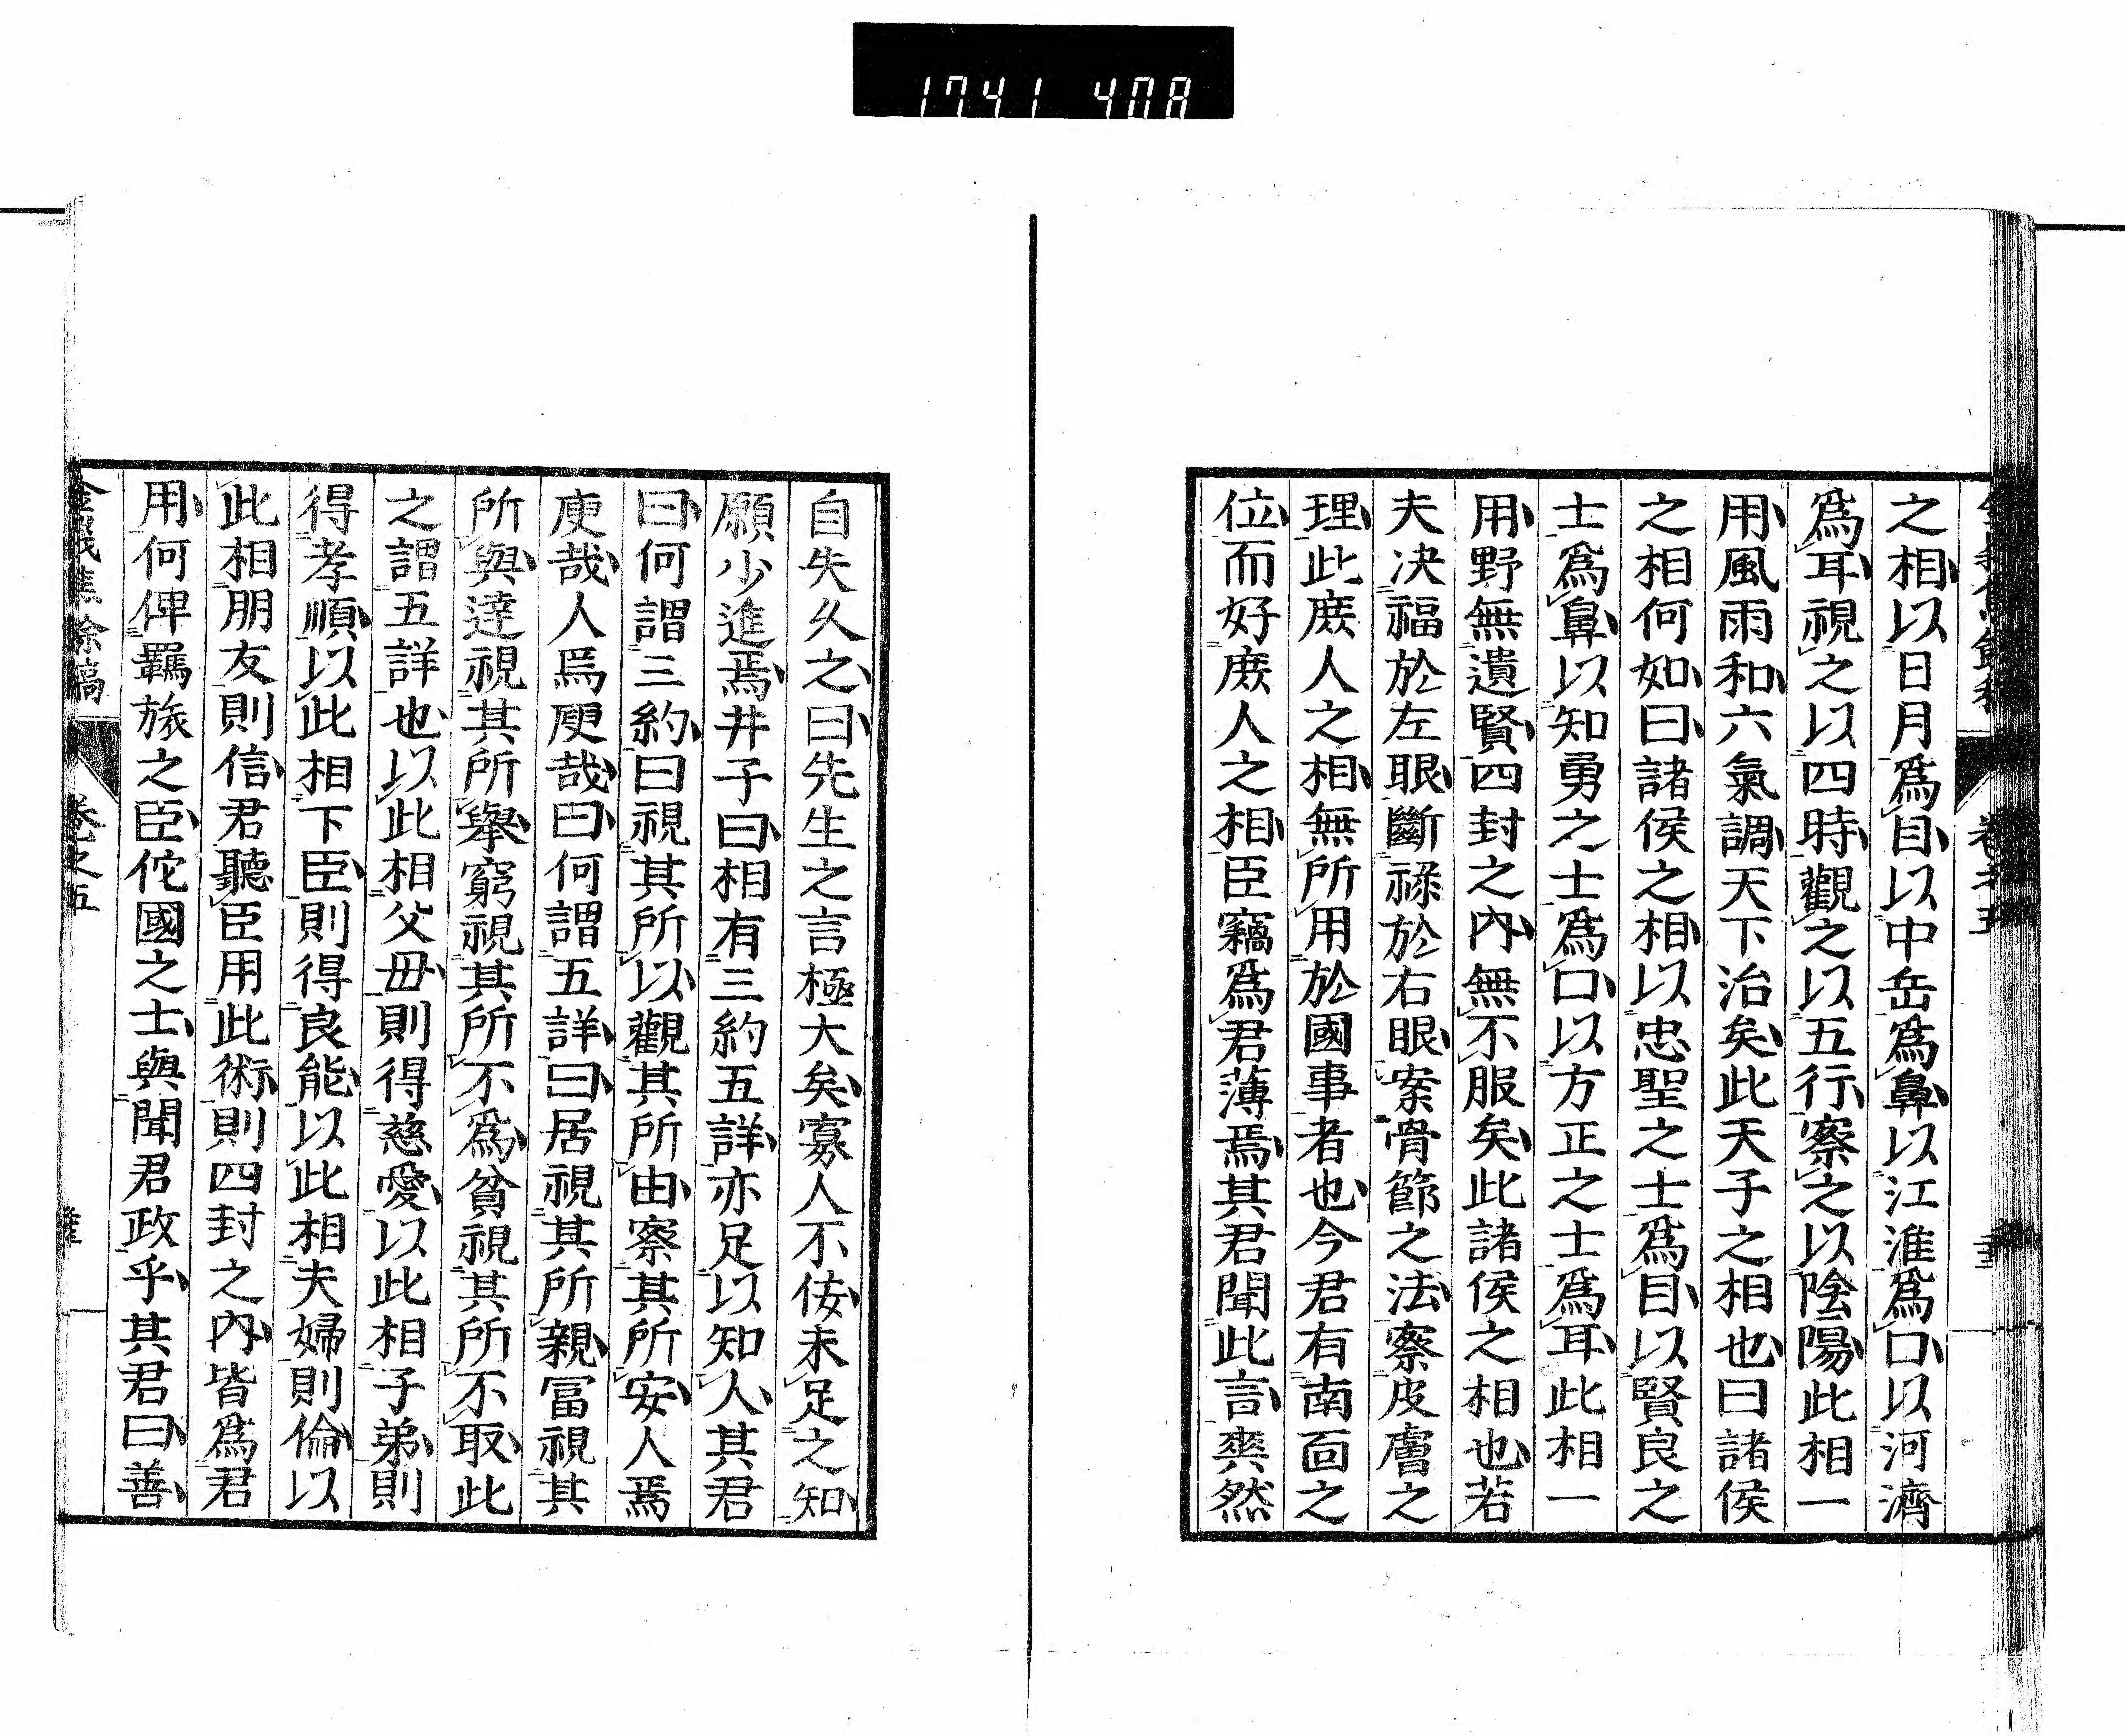 1741 408
之相以日月爲目以中岳爲鼻以江淮爲口以河濟
爲耳視之以四時觀之以五行察之以陰陽此相一
用風雨和六氣調天下治矣此天子之相也曰諸侯
之相何如曰諸侯之相以忠聖之士爲目以賢良之
士爲鼻以知勇之士爲口以方正之士爲耳此相一
用野無遺賢四封之內無不服矣此諸侯之相也若
夫决福於左眼斷祿於右眼案骨節之法察皮膚之
理此庻人之相無所用於國事者也今君有南面之
位而好庻人之相臣竊爲君薄焉其君聞此言爽然
自失久之曰先生之言極大矣寡人不侫未足之知
願少進焉井子曰相有三約五詳亦足以知人其君
曰何謂三約曰視其所以觀其所由察其所安人焉
廋哉人焉廋哉曰何謂五詳曰居視其所親冨視其
所與達視其所擧窮視其所不爲貧視其所不取此
之謂五詳也以此相父毋則得慈愛以此相子弟則
得孝順以此相下臣則得良能以此相夫婦則倫以
此相朋友則信君聽臣用此術則四封之內皆爲君
用何俾羈旅之臣佗國之士與聞君政乎其君曰善
金峩蕉餘稿 卷之五